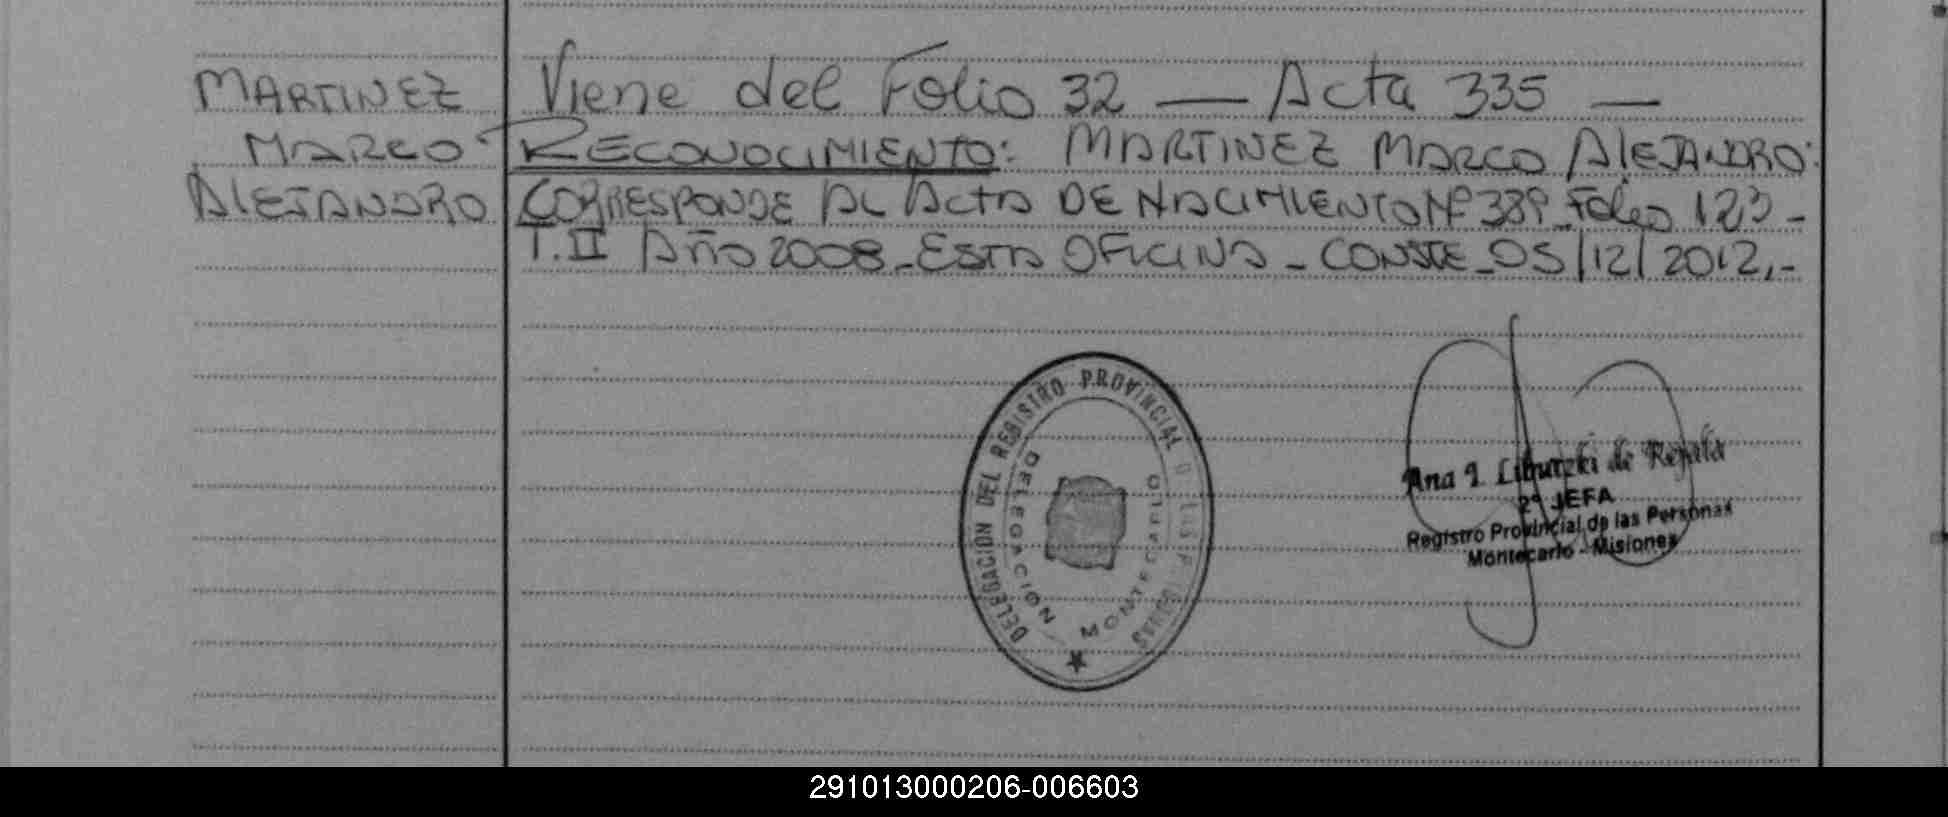 MARTINEZ
MARCO
ALEJANDRO
Viene del Folio 32 — Acta 335 —
RECONOCIMIENTO: MARTINEZ MARCO ALEJANDRO:
CORRESPONDE AL ACTA DE NACIMIENTO Nº 339 Folio 123 -
T. II AÑO 2008 - ESTA OFICINA - CONSTE - 05/12/2012.-
DELEGACION DEL REGISTRO PROVINCIAL D LAS PERSONAS
DELEGACIÓN MONTECARLO
Ana I. de
2º JEFA
Registro Provincial de las Personas
Montecarlo - Misiones
291013000206-006603